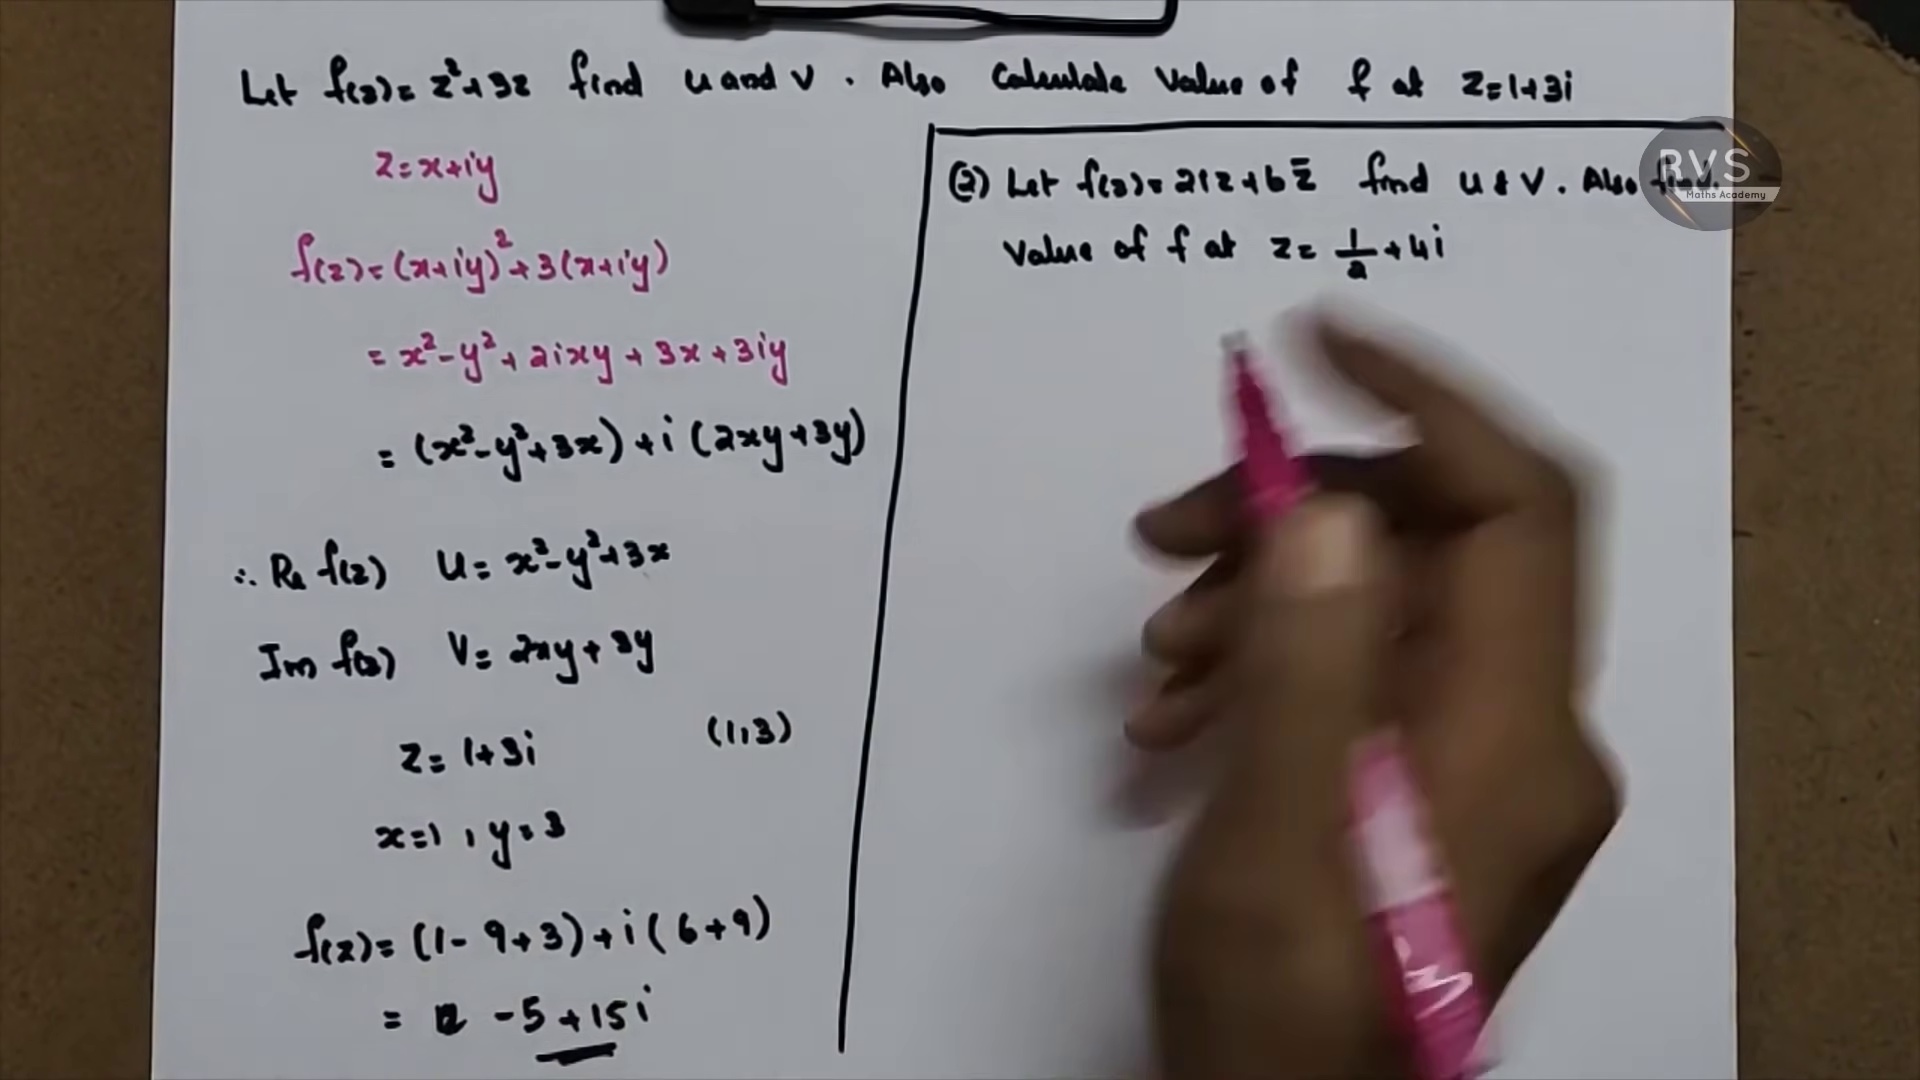 Let f(z)= z²+3z find u and v. Also Calculate Value of f at z=1+3i
z=x+iy
f(z)=(x+iy)²+3(x+iy)
= x²-y²+2ixy+3x+3iy
= (x²-y²+3x)+i(2xy+3y)
∴ Re f(z) u= x²-y²+3x
Im f(z) v= 2xy+3y
z= 1+3i (1,3)
x=1, y=3
f(z)= (1-9+3)+i(6+9)
= -5+15i
(2) Let f(z)= 2iz+6z̄ find u & v. Also find
Value of f at z= 1/2+4i
RVS
Maths Academy